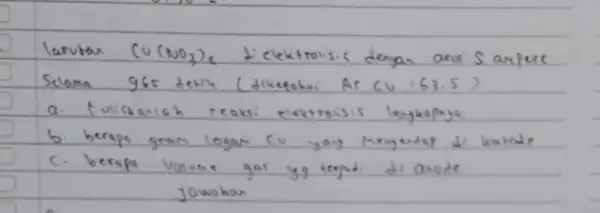 larutan Cu(NO3)2 di elektrolisis dengan arus 5 ampere
Selama 965 detik (diketahui Ar Cu : 63.5)
a. tuliskanlah reaksi elektrolisis lengkapnya
b berapa gram logam Cu yang mengendap di katode
C. berapa volume gas yg terjadi di anode
Jawaban